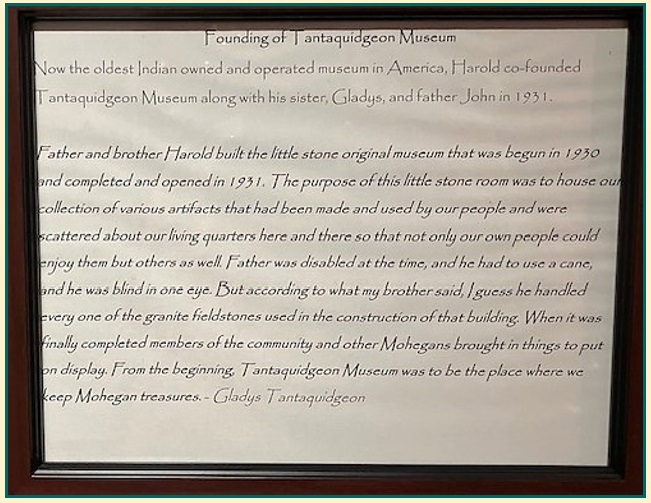 Founding of Tantaquidgeon Museum
Now the oldest Indian owned and operated museum in America, Harold co-founded
Tantaquidgeon Museum along with his sister, Gladys, and father John in 1931.
Father and brother Harold built the little stone original museum that was begun in 1930
and completed and opened in 1931. The purpose of this little stone room was to house our
collection of various artifacts that had been made and used by our people and were
scattered about our living quarters here and there so that not only our own people could
enjoy them but others as well. Father was disabled at the time, and he had to use a cane,
and he was blind in one eye. But according to what my brother said, I guess he handled
every one of the granite fieldstones used in the construction of that building. When it was
finally completed members of the community and other Mohegans brought in things to put
on display. From the beginning, Tantaquidgeon Museum was to be the place where we
keep Mohegan treasures. - Gladys Tantaquidgeon